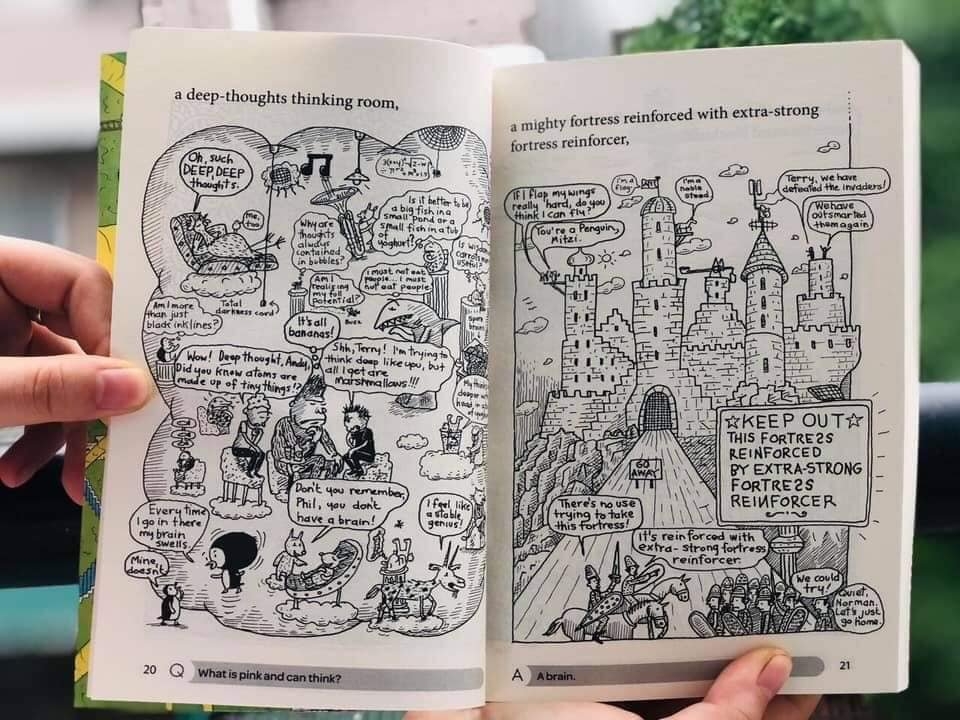 a deep-thoughts thinking room,
Oh, such
DEEP, DEEP
thoughts.
Me,
too
Why are
thoughts
always
contained
in bubbles?
Is it better to be
a big fish in a
small pond or a
small fish in a tub
of
yoghurt?
Am I
realising
my full
potential?
I must not eat
people... I must
not eat people
Am I more
than just
black ink lines?
Total
darkness cord
It's all
bananas!
Wow! Deep thought, Andy,
Did you know atoms are
made up of tiny things!?
Shh, Terry! I'm trying to
think deep like you, but
all I get are
Marshmallows!!!
Every time
I go in there
my brain
swells.
Mine
doesn't
Don't you remember,
Phil, you don't
have a brain!
I feel like
a stable
genius!
20 Q What is pink and can think?
a mighty fortress reinforced with extra-strong
fortress reinforcer,
If I flap my wings
really hard, do you
think I can fly?
You're a Penguin,
Mitzi.
I'm a
flag!
ANT
I'm a
noble
steed
Terry, we have
defeated the invaders!
We have
outsmarted
them again
☆KEEP OUT☆
THIS FORTRE2S
REINFORCED
BY EXTRA-STRONG
FORTRE2S
REINFORCER
GO
AWAY
There's no use
trying to take
this fortress!
It's reinforced with
extra-strong fortress
reinforcer.
We could
try!
Quiet,
Norman.
Let's just
go home.
A A brain. 21